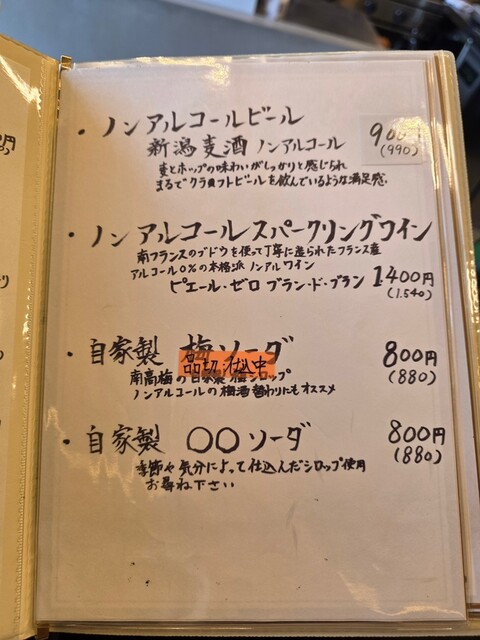 ・ノンアルコールビール
新潟麦酒 ノンアルコール 900円
(990)
麦とホップの味わいがしっかりと感じられ
まるでクラフトビールを飲んでいるような満足感.
・ノンアルコールスパークリングワイン
南フランスのブドウを使って丁寧に造られたフランス産
アルコール0%の本格派 ノンアルワイン
ピエール・ゼロ ブラン・ド・ブラン 1400円
(1.540)
・自家製 梅ソーダ 800円
品切 仕込中
南高梅の自家製梅シロップ (880)
ノンアルコールの梅酒替わりにもオススメ
・自家製 〇〇ソーダ 800円
(880)
季節や気分によって仕込んだシロップ使用
お尋ね下さい